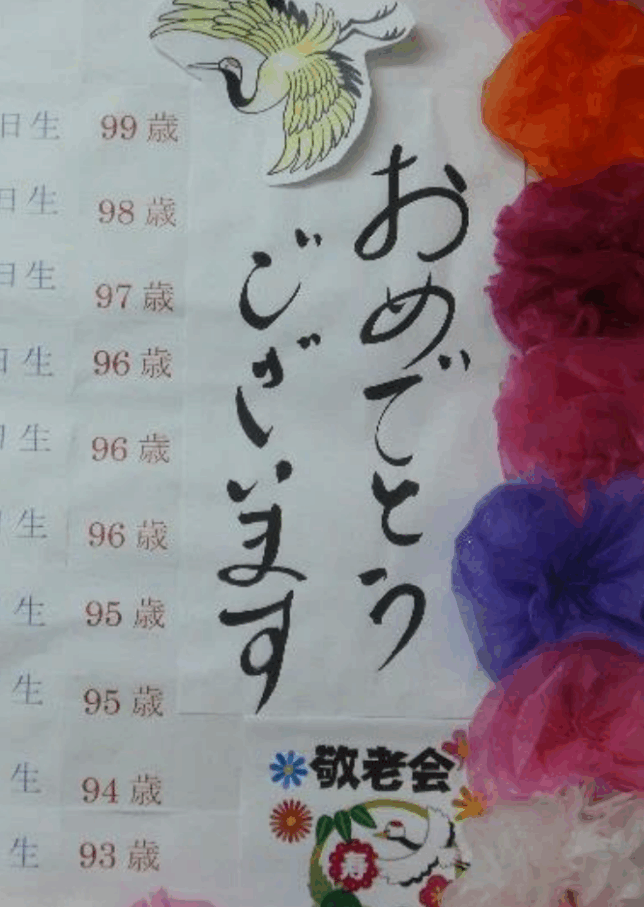 おめでとう
ございます
日生 99歳
日生 98歳
日生 97歳
日生 96歳
生 96歳
生 96歳
生 95歳
生 95歳
生 94歳
生 93歳
敬老会
寿